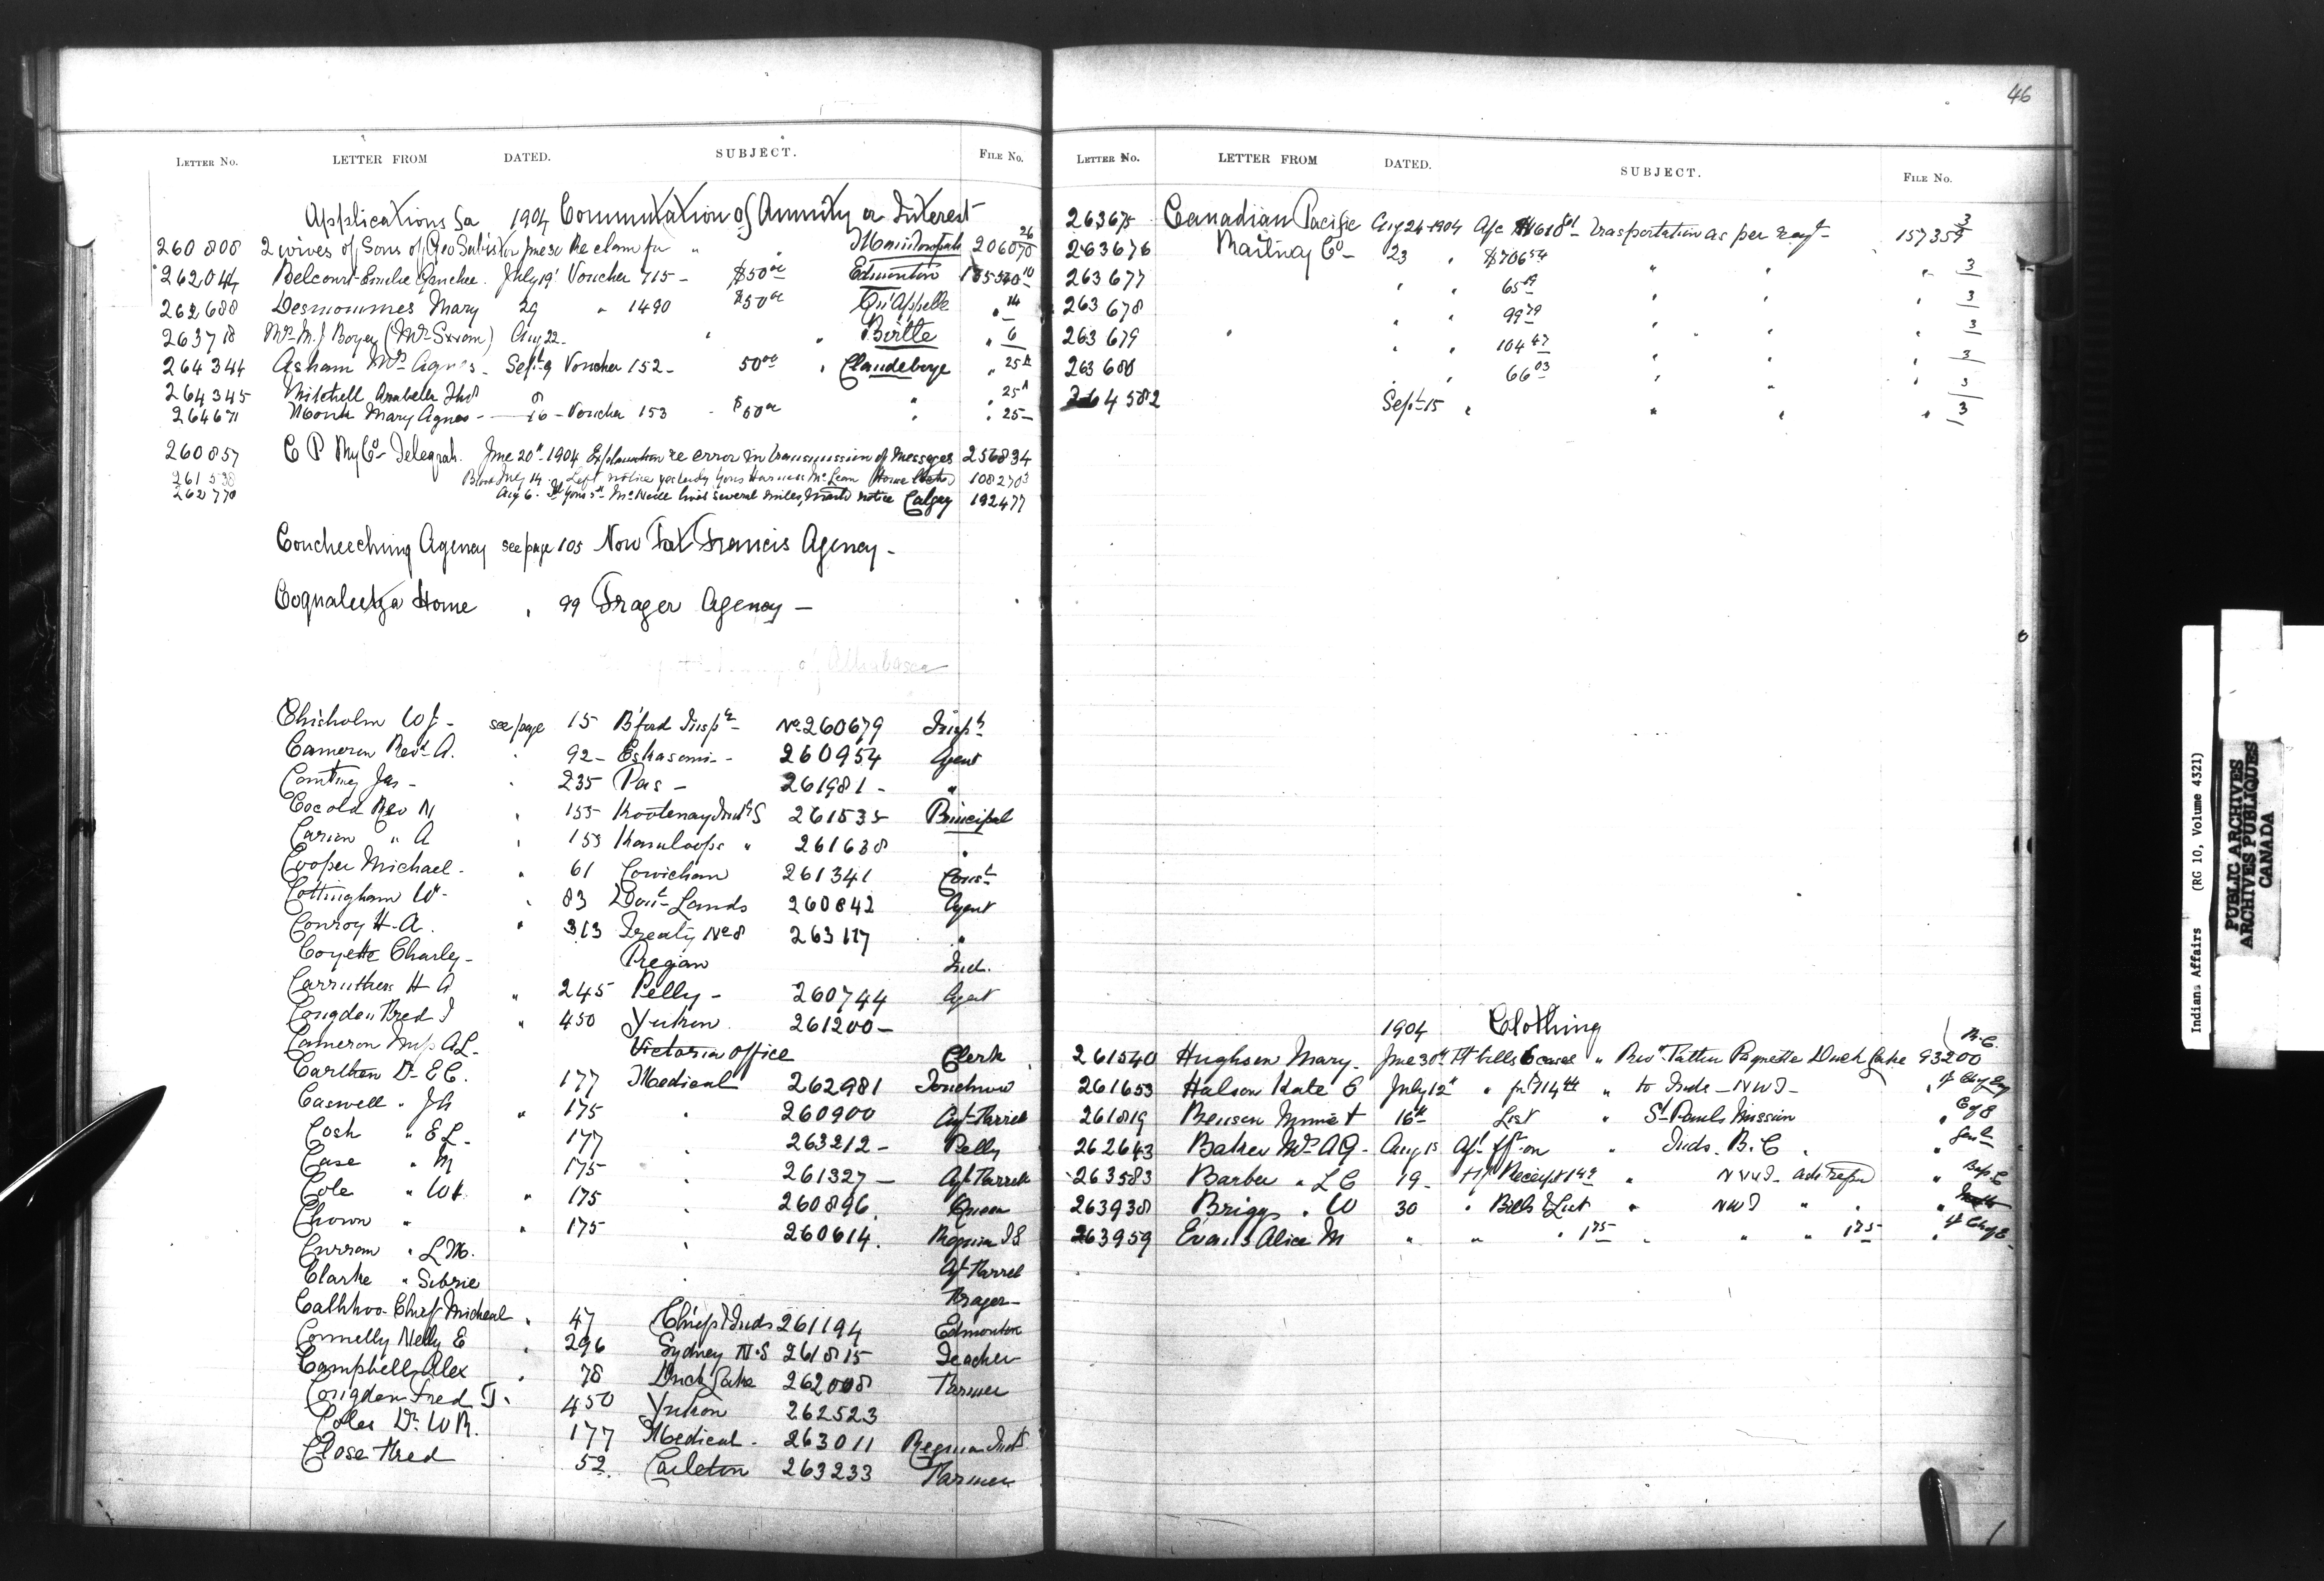 46
LETTER NO. LETTER FROM DATED. SUBJECT. FILE NO.
Applications for 1904 Commutation of Annuity or Interest
260808 2 wives of Sons of Geo June 30 Re claim for " " 206070 26
262044 Belcourt Emilie July 19 Voucher 715 - $50 00 Edmonton 10
262688 Desmoumes Mary 29 " 1490 $50 00 Qu'Appelle " 14
263718 Mrs M. J Boyer Aug 22 - " " Birtle " 6
264344 Asham Mrs Agnes - Sept 9 Voucher 152 - 50 00 " Clandeboye " 25
264345 Mitchell Arabella " 25
264671 Monk Mary Agnes - 16 - Voucher 153 - $50 00 " " 25 -
260857 C P Ry Co - Telegraph. June 20th 1904 Explanation re error in transmission of Messages 256834
261538 July 14 Left notice yesterday yours McLean 108270 3
262770 Aug 6. McNeill lives several miles, notice Calgary 192477
Coucheeching Agency see page 105 Now Fort Francis Agency -
Coqualeetza Home " 99 Fraser Agency -
of Athabasca
Chisholm W J - see page 15 B'ford Inspr - No 260679 Inspr
Cameron Revd A. " 92 - Eskasoni - - 260954 Agent
Courtney Jas - " 235 Pas - 261981 - "
Coccola Rev N " 155 Kootenay Indl S 261535 Principal
Carion " A " 153 Kamloops " 261638 "
Cooper Michael - " 61 Cowichan 261341 Const
Cottingham W - " 83 Domn Lands 260842 Agent
Conroy H. A. " 313 Treaty No 8 263117 "
Coyette Charley - Piegan Ind.
Carruthers H A " 245 Pelly - 260744 Agent
Congdon Fred T " 450 Yukon 261200 -
Cameron Miss A L - Victoria office Clerk
Carlton Dr E C. 177 Medical 262981
Caswell " J A " 175 " 260900
Cosh " E L - 177 " 263212 - Pelly
Case " M 175 " 261327 -
Cole " W F. " 175 " 260896.
Chown " " 175 " 260614. Regina I S
Curran " L M.
Clarke " Fraser -
Calhhoo Chief Micheal " 47 Chiefs Inds 261194 Edmonton
Connelly Nelly E " 296 Sydney N.S 261815 Teacher
Campbell Alex " 78 Duck Lake 262008 Farmer
Congdon Fred T. 450 Yukon 262523
Coles Dr. W R. 177 Medical - 263011 Regina Indl
Close Fred 52. Carleton 263233 Farmer
LETTER NO. LETTER FROM DATED. SUBJECT. FILE NO.
263675 Canadian Pacific Aug 24 - 1904 A/c Transportation as per reqt - 157359 3
263676 Railway Co - 23 " $706 54 " " " 3
263677 " " 65 " " " 3
263678 " " 99 79 " " " 3
263679 " " " 104 47 " " " 3
263680 " " 66 03 " " " 3
264582 Sept 15 " " " " 3
1904 Clothing
261540 Hughson Mary - June 30th bills 6 cases " Duck Lake 93200
261653 Halson Kate E July 12th " " to Inds - N W T -
261819 Benson Minnie 16th List " St Pauls Mission "
262643 Baker Mrs A G - Aug 15 " Inds. B. C "
263583 Barber " L C 19 - Receipt " N W T -
263938 Briggs " W 30 " Bill & List " N W T " "
263959 Evans Alice M " " " 175 " " " 175 "
Indians Affairs (RG 10, Volume 4321)
PUBLIC ARCHIVES
ARCHIVES PUBLIQUES
CANADA